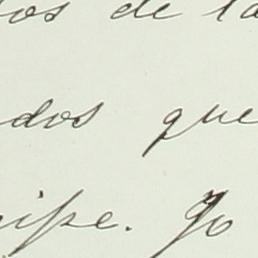 los de la
dos que
ipe. Yo